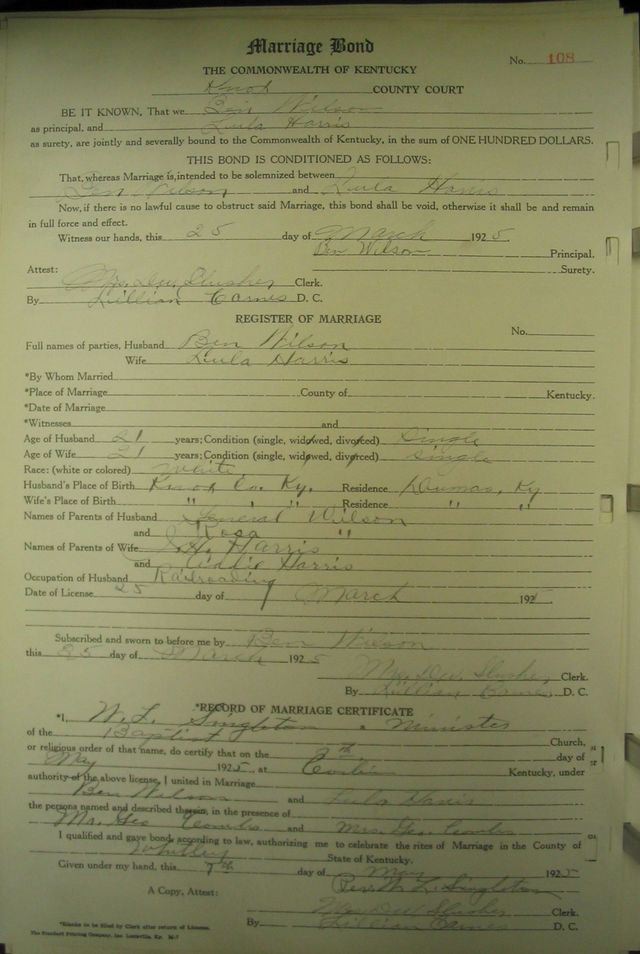 Marriage Bond
No. 108
THE COMMONWEALTH OF KENTUCKY
Knox COUNTY COURT
BE IT KNOWN, That we Ben Wilson
as principal, and Lula Harris
as surety, are jointly and severally bound to the Commonwealth of Kentucky, in the sum of ONE HUNDRED DOLLARS.
THIS BOND IS CONDITIONED AS FOLLOWS:
That, whereas Marriage is intended to be solemnized between
Ben Wilson and Lula Harris
Now, if there is no lawful cause to obstruct said Marriage, this bond shall be void, otherwise it shall be and remain
in full force and effect.
Witness our hands, this 25 day of March 1925.
Ben Wilson Principal.
Surety.
Attest:
Mrs. D.W. Slusher Clerk.
By Lillian Carnes D. C.
REGISTER OF MARRIAGE
No.
Full names of parties, Husband Ben Wilson
Wife Lula Harris
*By Whom Married
*Place of Marriage County of Kentucky.
*Date of Marriage
*Witnesses and
Age of Husband 21 years; Condition (single, widowed, divorced) Single
Age of Wife 21 years; Condition (single, widowed, divorced) Single
Race: (white or colored) White
Husband's Place of Birth Knox Co. Ky. Residence Dumas, Ky
Wife's Place of Birth " " " " Residence " "
Names of Parents of Husband General Wilson
and Rosa "
Names of Parents of Wife Harris
and Addie Harris
Occupation of Husband Railroading
Date of License 25 day of March 192
Subscribed and sworn to before me by Ben Wilson
this 25 day of March 1925
Mrs. D.W. Slusher, Clerk.
By Lillian Carnes D. C.
*RECORD OF MARRIAGE CERTIFICATE
*I, W. L. Singleton a Minister
of the Baptist Church,
or religious order of that name, do certify that on the 7th day of
May 1925 at Corbin Kentucky, under
authority of the above license, I united in Marriage
Ben Wilson and Lula Harris
the persons named and described therein, in the presence of
Mr. Geo Combs and Mrs. Geo. Combs
I qualified and gave bond, according to law, authorizing me to celebrate the rites of Marriage in the County of
Whitley State of Kentucky.
Given under my hand, this 7th day of May 1925
W. L. Singleton
A Copy, Attest:
Mrs D.W. Slusher Clerk.
By Lillian Carnes D. C.
*Blanks to be filled by Clerk after return of License.
The Standard Printing Company, Inc. Louisville, Ky.